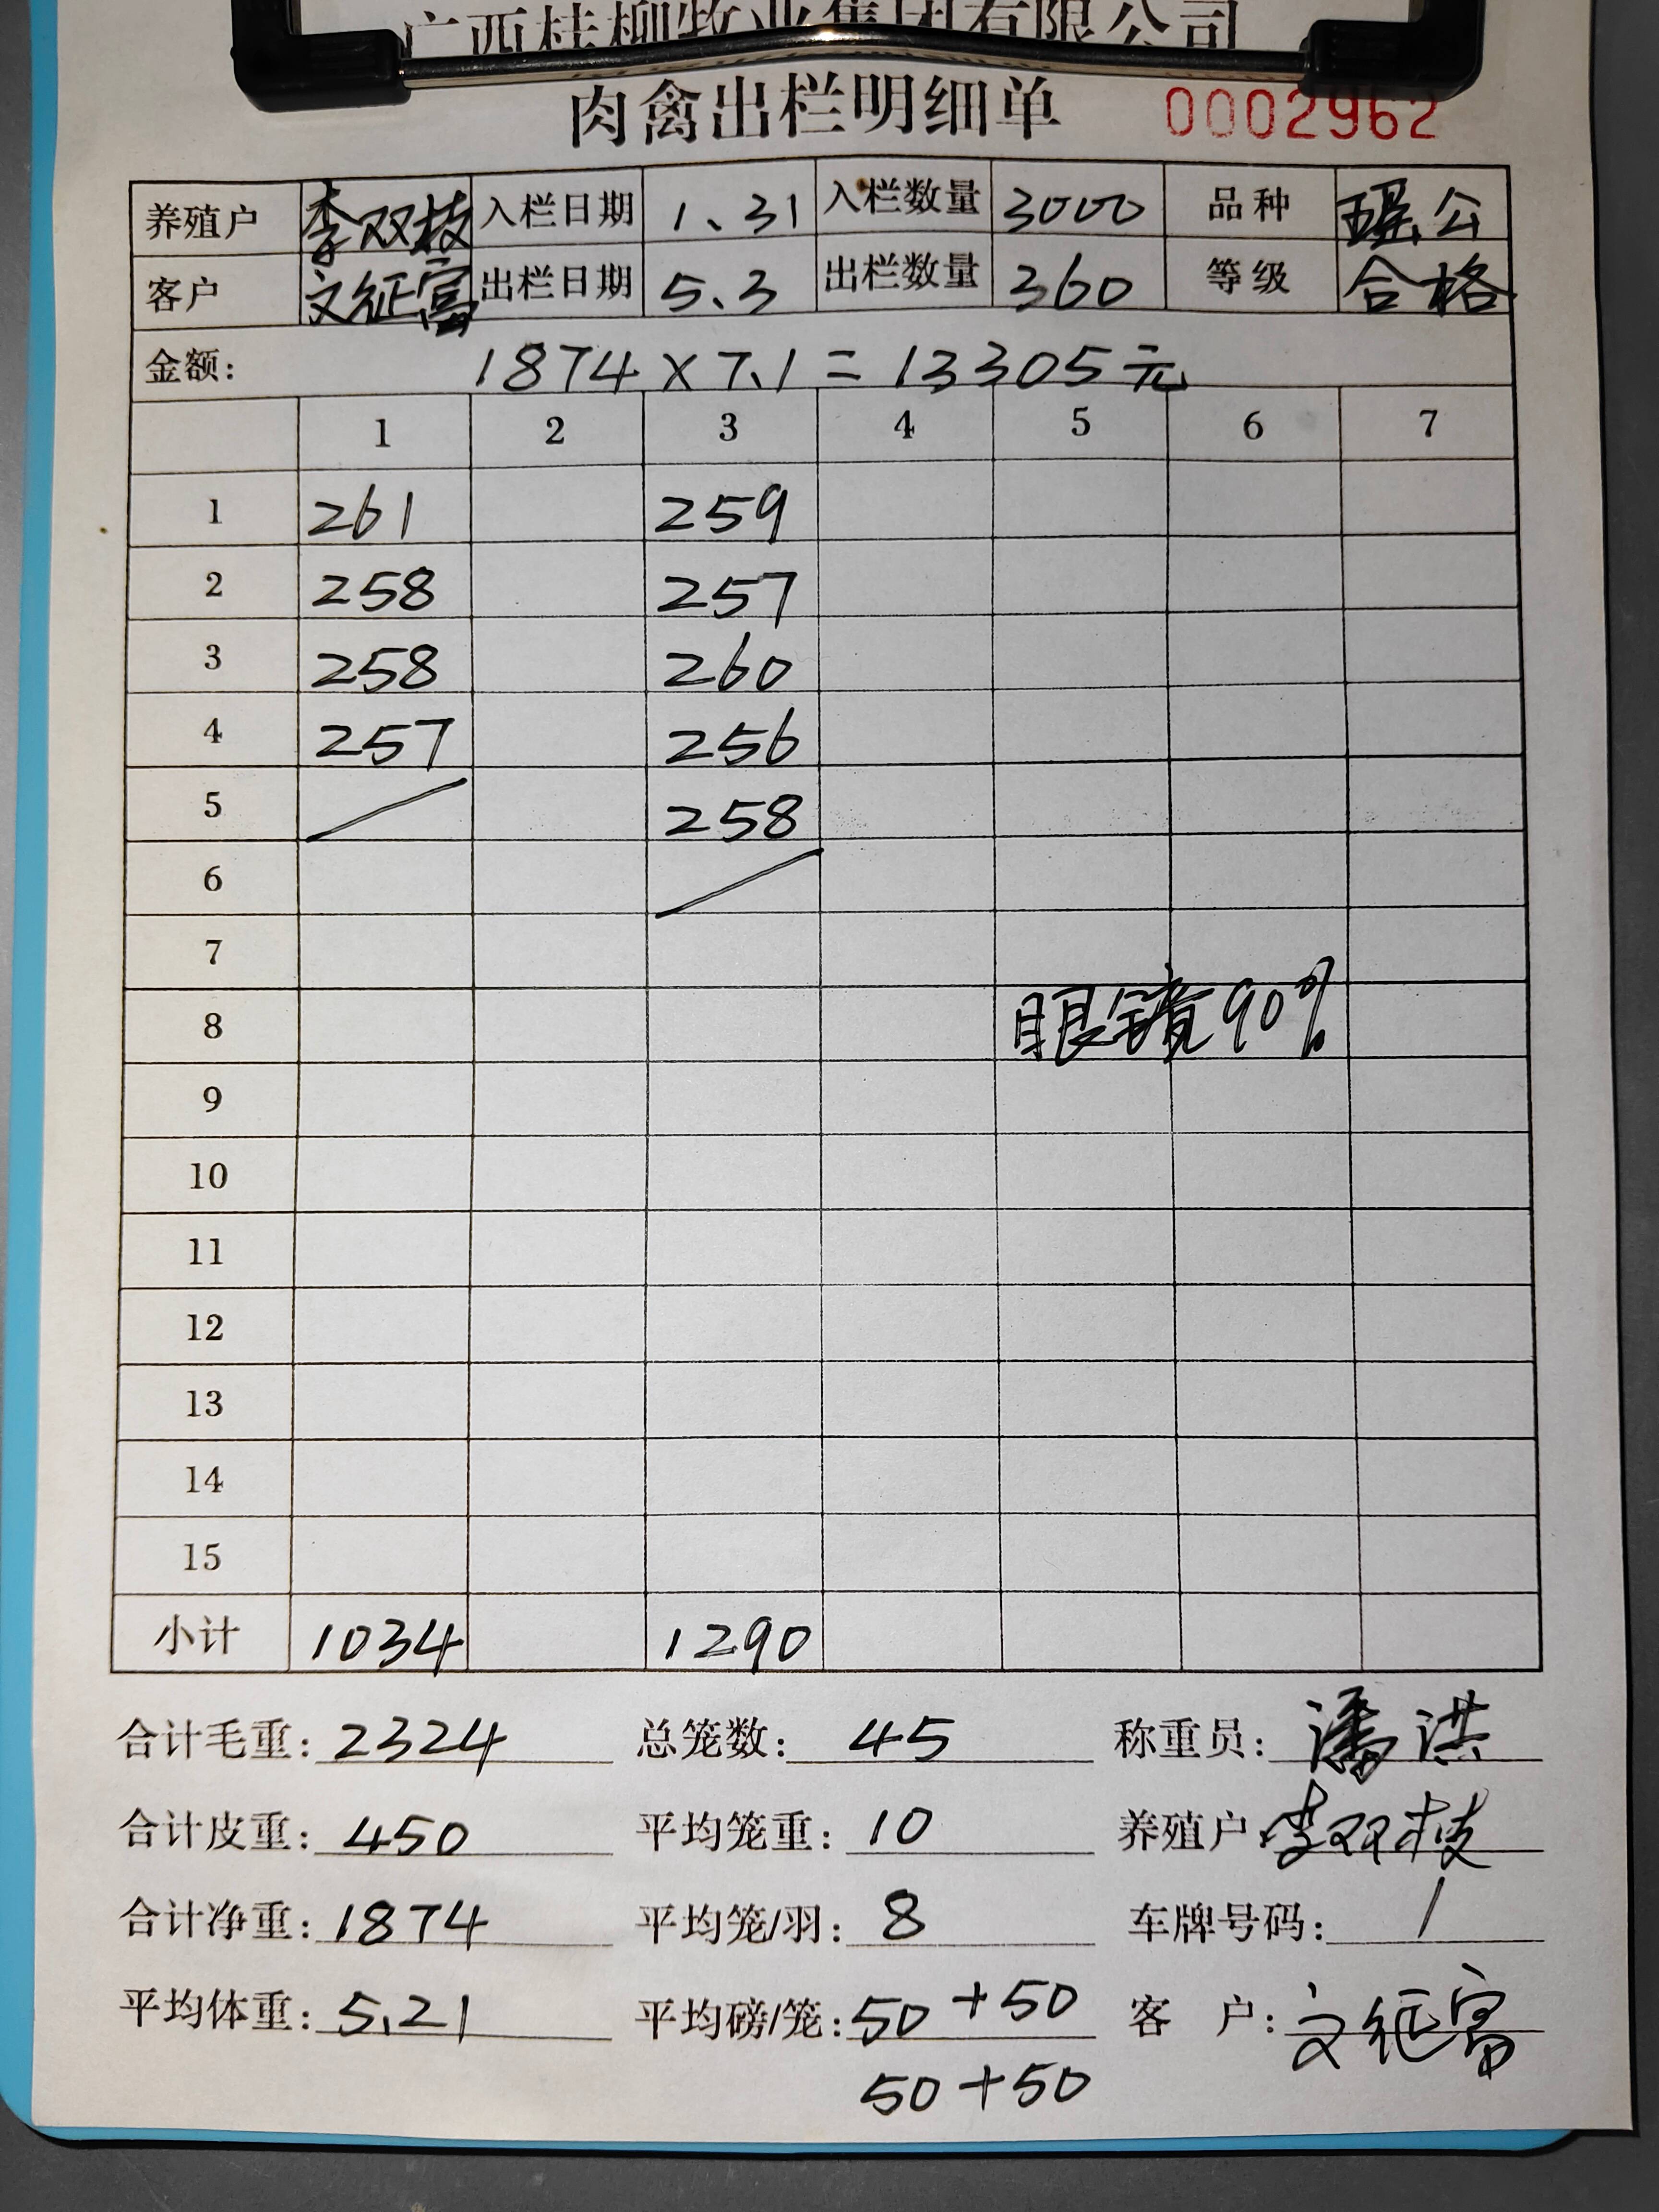 广西桂柳牧业集团有限公司
肉禽出栏明细单 0002962
养殖户 李双枝 入栏日期 1、31 入栏数量 3000 品种 瑶公
客户 文征富 出栏日期 5、3 出栏数量 360 等级 合格
金额: 1874×7.1=13305元
1 2 3 4 5 6 7
1 261 259
2 258 257
3 258 260
4 257 256
5 258
6
7
8 眼镜90%
9
10
11
12
13
14
15
小计 1034 1290
合计毛重: 2324 总笼数: 45 称重员: 潘洪
合计皮重: 450 平均笼重: 10 养殖户: 李双枝
合计净重: 1874 平均笼/羽: 8 车牌号码: /
平均体重: 5.21 平均磅/笼: 50+50 客 户: 文征富
50+50